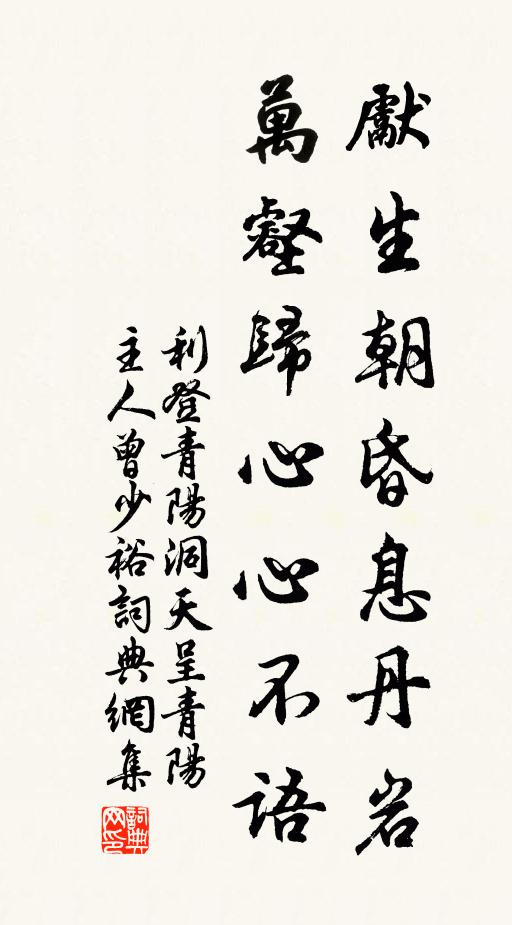 獻生朝昏息丹岩
萬壑歸心心不語
利登青陽洞天呈青陽
主人曾少裕詞典網集
詞典网印